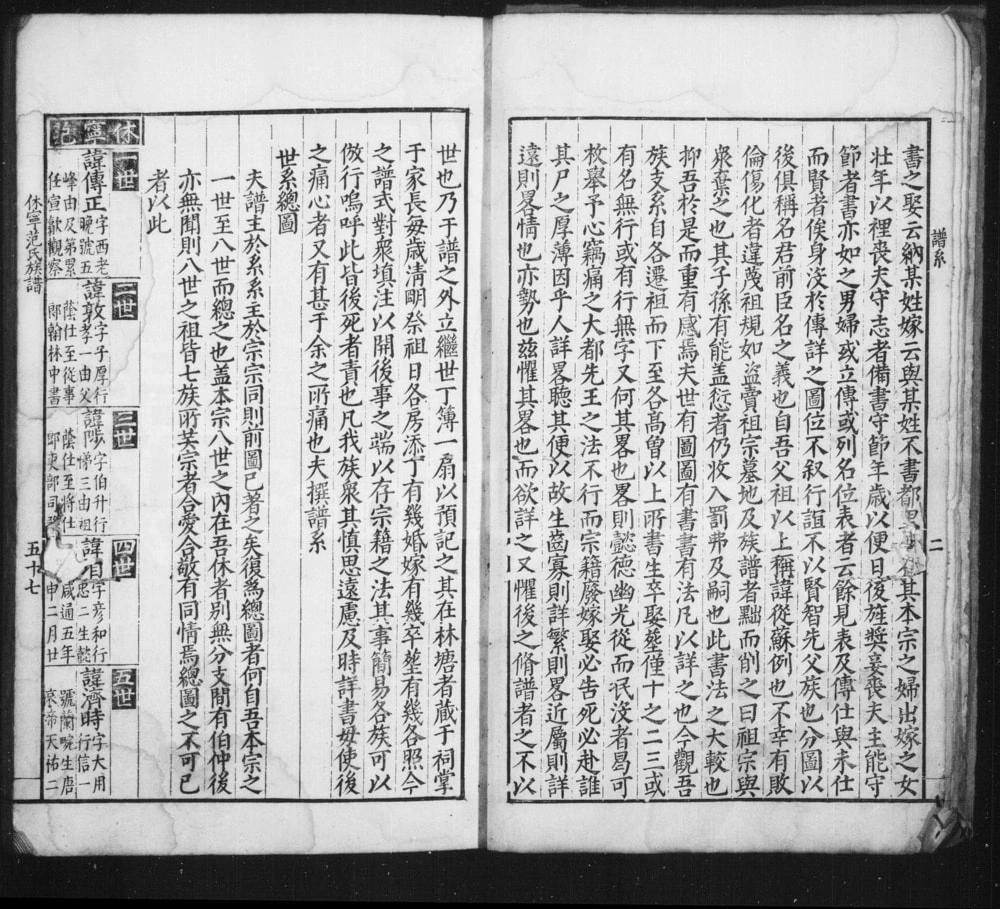 譜系
二
書之娶云納某姓嫁云與某姓不書都其本宗之婦出嫁之女
壯年以裡喪夫守志者備書守節年歲以便日後旌獎妾喪夫主能守
節者書亦如之男婦或立傳或列名位表者云餘見表及傳仕與未仕
而賢者俟身沒於傳詳之圖位不叙行誼不以賢智先父族也分圖以
後俱稱名君前臣名之義也自吾父祖以上稱諱從蘇例也不幸有敗
倫傷化者違蔑祖規如盜賣祖宗墓地及族譜者黜而削之曰祖宗與
衆棄之也其子孫有能盖愆者仍收入罰弗及嗣也此書法之大較也
抑吾於是而重有感焉夫世有圖圖有書書有法凡以詳之也今觀吾
族支系自各遷祖而下至各高曾以上所書生卒娶塟僅十之二三或
有名無行或有行無字又何其畧也畧則懿德幽光從而泯沒者曷可
枚舉予心竊痛之大都先王之法不行而宗籍廢嫁娶必告死必赴誰
其尸之厚薄因乎人詳畧聽其便以故生齒寡則詳繁則畧近屬則詳
遠則畧情也亦勢也玆懼其畧也而欲詳之又懼後之脩譜者之不以
世也乃于譜之外立繼世丁簿一扇以預記之其在林塘者藏于祠掌
于家長每歲清明祭祖日各房添丁有幾婚嫁有幾卒塟有幾各照今
之譜式對衆填注以開後事之端以存宗籍之法其事簡易各族可以
倣行嗚呼此皆後死者責也凡我族衆其慎思遠慮及時詳書毋使後
之痛心者又有甚于余之所痛也夫撰譜系
世系總圖
夫譜主於系系主於宗宗同則前圖已著之矣復為總圖者何自吾本宗之
一世至八世而總之也盖本宗八世之內在吾休者别無分支間有伯仲後
亦無聞則八世之祖皆七族所共宗者合愛合敬有同情焉總圖之不可已
者以此
休寧范
一世
諱傳正字西老
晚號五
峰由及第累
任宣歙觀察
二世
諱敦字子厚行
孝一由父
蔭仕至從事
郎翰林中書
三世
諱陟字伯升行
悌三由祖
蔭仕至將仕
郎吏部司
四世
諱自字彦和行
忠二生懿
咸通五年
申二月廿
五世
諱濟時字大用
行信一
號蘭畹生唐
哀帝天祐二
休寧范氏族譜
五十七